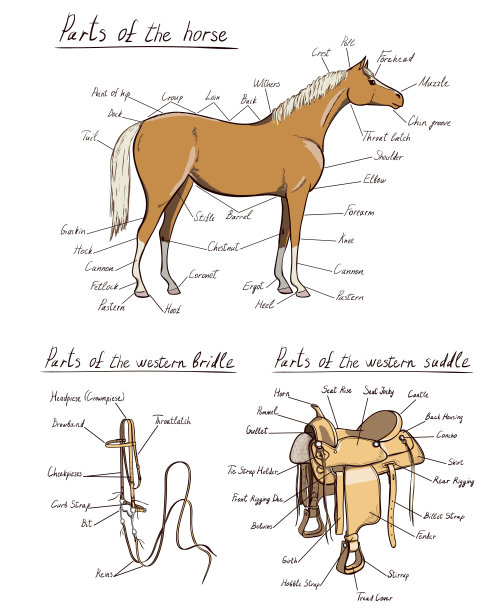 Parts of the horse
Poll
Crest
Forehead
Withers
Muzzle
Point of hip
Croup
Loin
Back
Dock
Chin groove
Tail
Throat latch
Shoulder
Elbow
Stifle
Barrel
Forearm
Gaskin
Knee
Hock
Chestnut
Cannon
Cannon
Coronet
Fetlock
Ergot
Pastern
Hoof
Heel
Pastern
Parts of the western bridle
Headpiece (Crownpiece)
Browband
Throatlatch
Cheekpieces
Curb Strap
Bit
Reins
Parts of the western saddle
Horn
Seat Rise
Seat Jocky
Cantle
Pommel
Back Housing
Gullet
Concho
Tie Strap Holder
Skirt
Rear Rigging
Front Rigging Dee
Billet Strap
Fender
Girth
Hobble Strap
Stirrup
Tread Cover